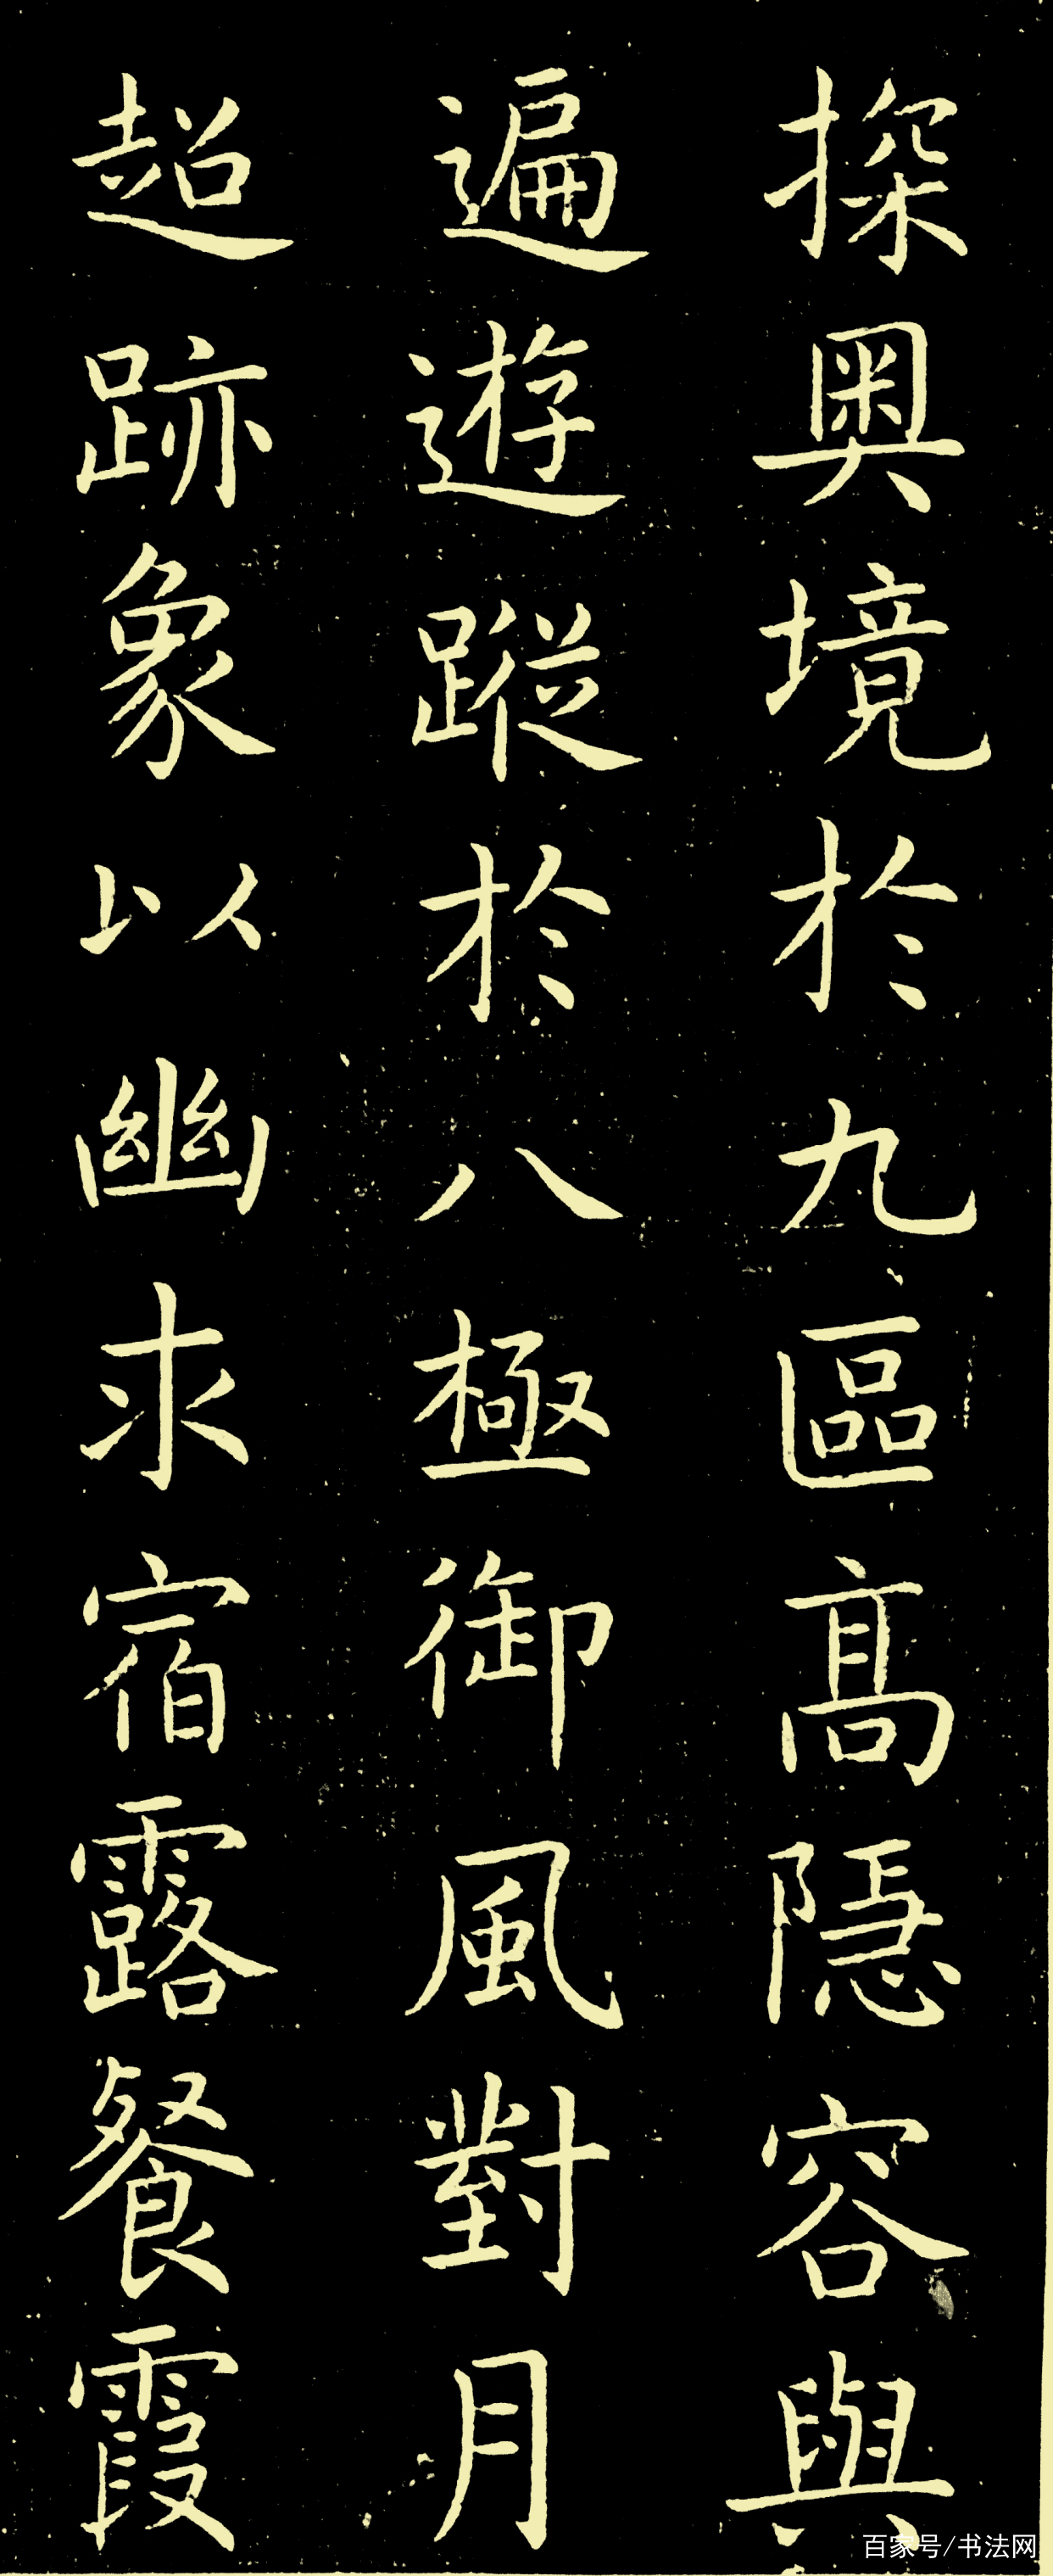 探奧境於九區高隱容與
遍遊蹤於八極御風對月
超跡象以幽求宿露餐霞
百家号/书法网